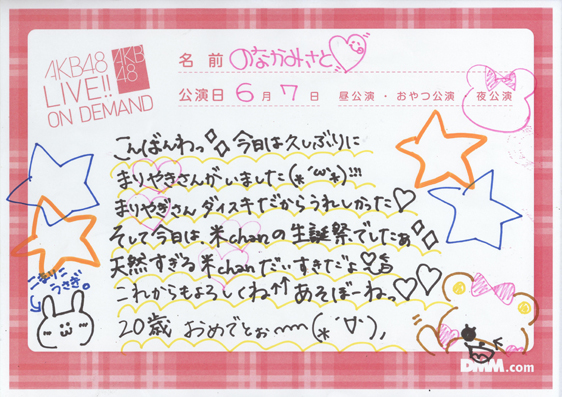 AKB48
LIVE!!
ON DEMAND
AKB
48
名前 のなかみさと♡
公演日 6月7日 昼公演・おやつ公演・夜公演
こんばんわっ 今日は久しぶりに
まりやぎさんがいました(*´ω`*)!!!
まりやぎさんダイスキだからうれしかった♡
そして今日は、米chanの生誕祭でしたぁ
天然すぎる米chanだいすきだよ♡
これからもよろしくね↑↑ あそぼーねっ♡♡
20歳 おめでとぉーーー(*´∀`),
うさぎ。
DMM.com